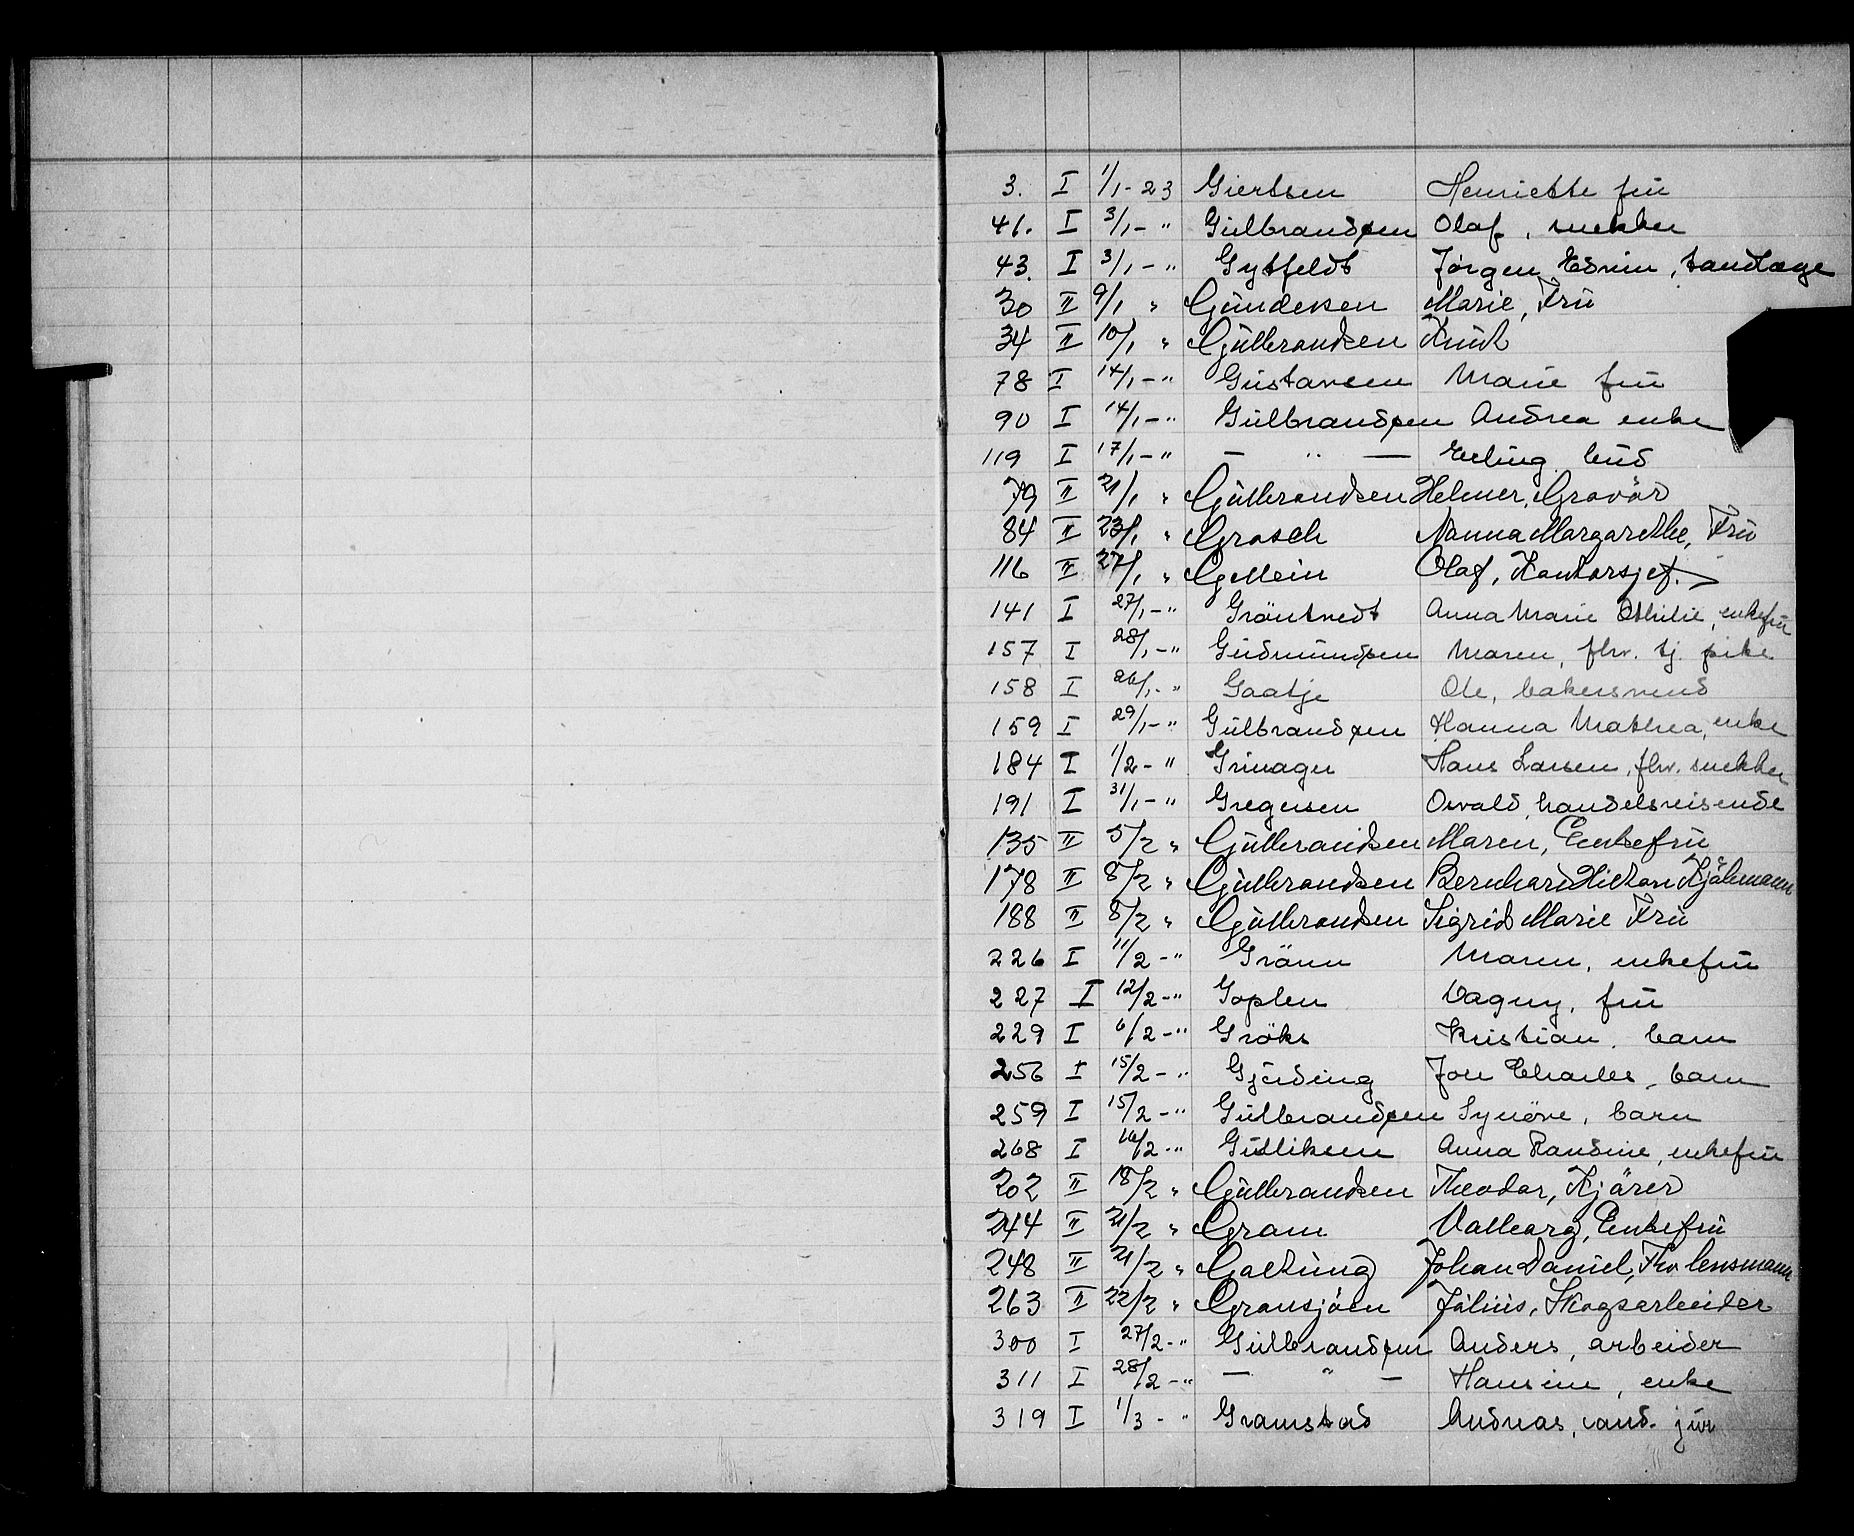 3. I 1/1-23 Giertsen Henriette frü
41. I 3/1-" Gülbrandsen Olaf, snekker
43. I 3/1-" Gytfeldt Jørgen Edvin, tandlæge
30 II 9/1 " Gündersen Marie, Frü
34 II 10/1 " Güllbrandsen Knüt
78 I 14/1-" Güstavsen Marie frü
90 I 14/1-" Gülbrandsen Andrea enke
119 I 17/1-" — " — Erling büd
79 II 21/1 " Güllbrandsen Helmer, Gravör
84 II 23/1 " Grosch Nanna Margarethe, Frü
116 II 27/1 " Gjellein Olaf, Kontorsjef.
141 I 27/1-" Gröntvedt Anna Marie Othilie, enkefrü
157 I 28/1-" Güdmündsen Maren, fhv. tj. pike
158 I 26/1-" Gaatje Ole, bakersvend
159 I 29/1-" Gülbrandsen Hanna Mathea, enke
184 I 1/2-" Grinager Hans Larsen, fhv. snekker
191 I 31/1-" Gregersen Osvald, handelsreisende
135 II 5/2 " Güllbrandsen Maren, Enkefrü
178 II 8/2 " Güllbrandsen Bernhard Hilton
188 II 8/2 " Güllbrandsen Sigrid Marie Frü
226 I 11/2-" Grönn Maren, enkefrü
227 I 12/2-" Goplen Dagny, frü
229 I 6/2-" Kristian, barn
256 I 15/2-" Gjerding Charles, barn
259 I 15/2-" Gülbrandsen Synöve, barn
268 I 16/2-" Güdliksen Anna Randine, enkefrü
202 II 18/2 " Güllbrandsen Theodor, Kjörer
244 II 21/2 " Gram Valborg, Enkefrü
248 II 21/2 " Galtüng Johan Daniel, Fhv lensmann
263 II 22/2 " Gransjöen Júliüs, Skogsarbeider
300 I 27/2-" Gülbrandsen Anders, arbeider
311 I 28/2-" — " — Hansine, enke
319 I 1/3-" Gramstad Andreas, cand. jur